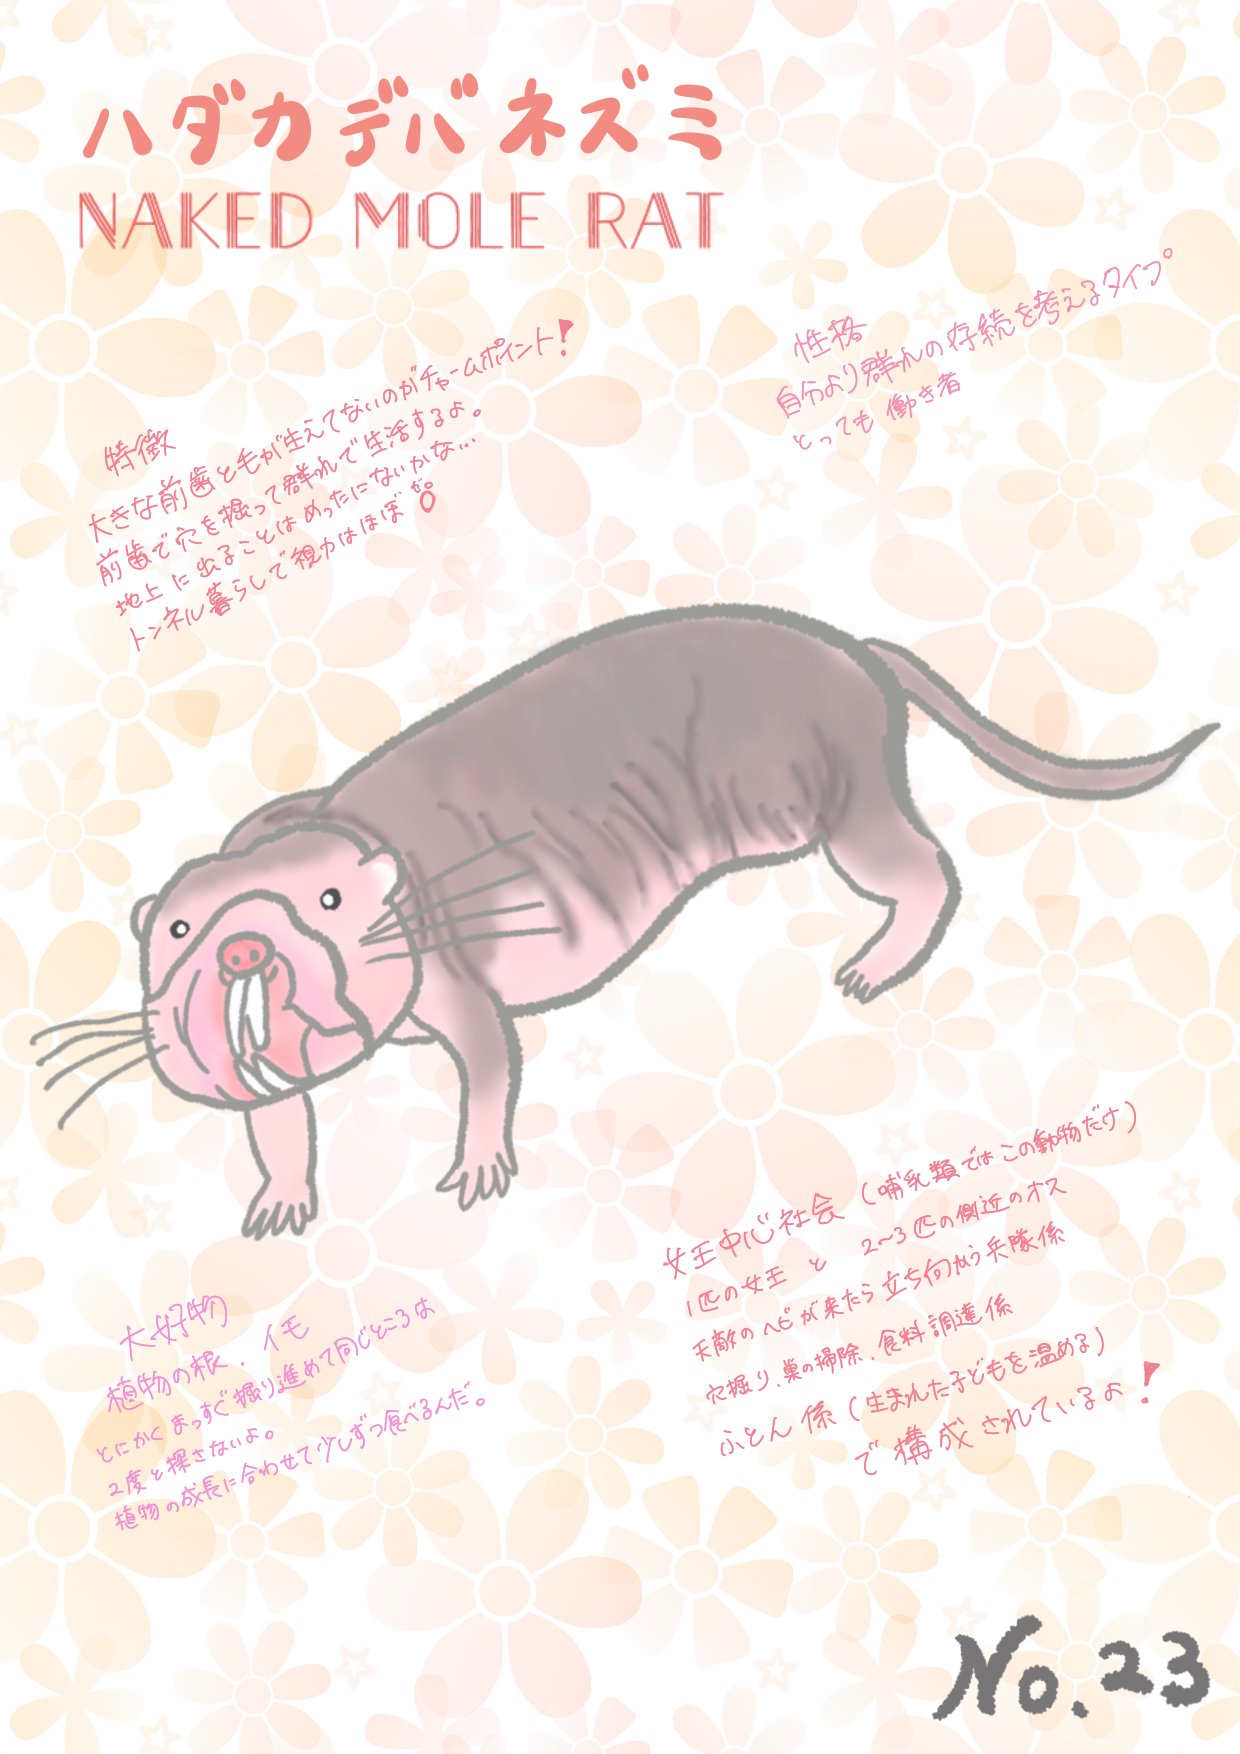 ハダカデバネズミ
NAKED MOLE RAT
特徴
大きな前歯と毛が生えてないのがチャームポイント!
前歯で穴を掘って群れで生活するよ。
地上に出ることはめったにないかな…
トンネル暮らしで視力はほぼゼロ
性格
自分より群れの存続を考えるタイプ
とっても働き者
女王中心社会(哺乳類ではこの動物だけ)
1匹の女王と 2〜3匹の側近のオス
天敵のヘビが来たら立ち向かう兵隊係
穴掘り、巣の掃除、食料調達係
ふとん係(生まれた子どもを温める)
で構成されているよ!
大好物
植物の根、イモ
とにかくまっすぐ掘り進めて同じところは
2度と探さないよ。
植物の成長に合わせて少しずつ食べるんだ。
No.23